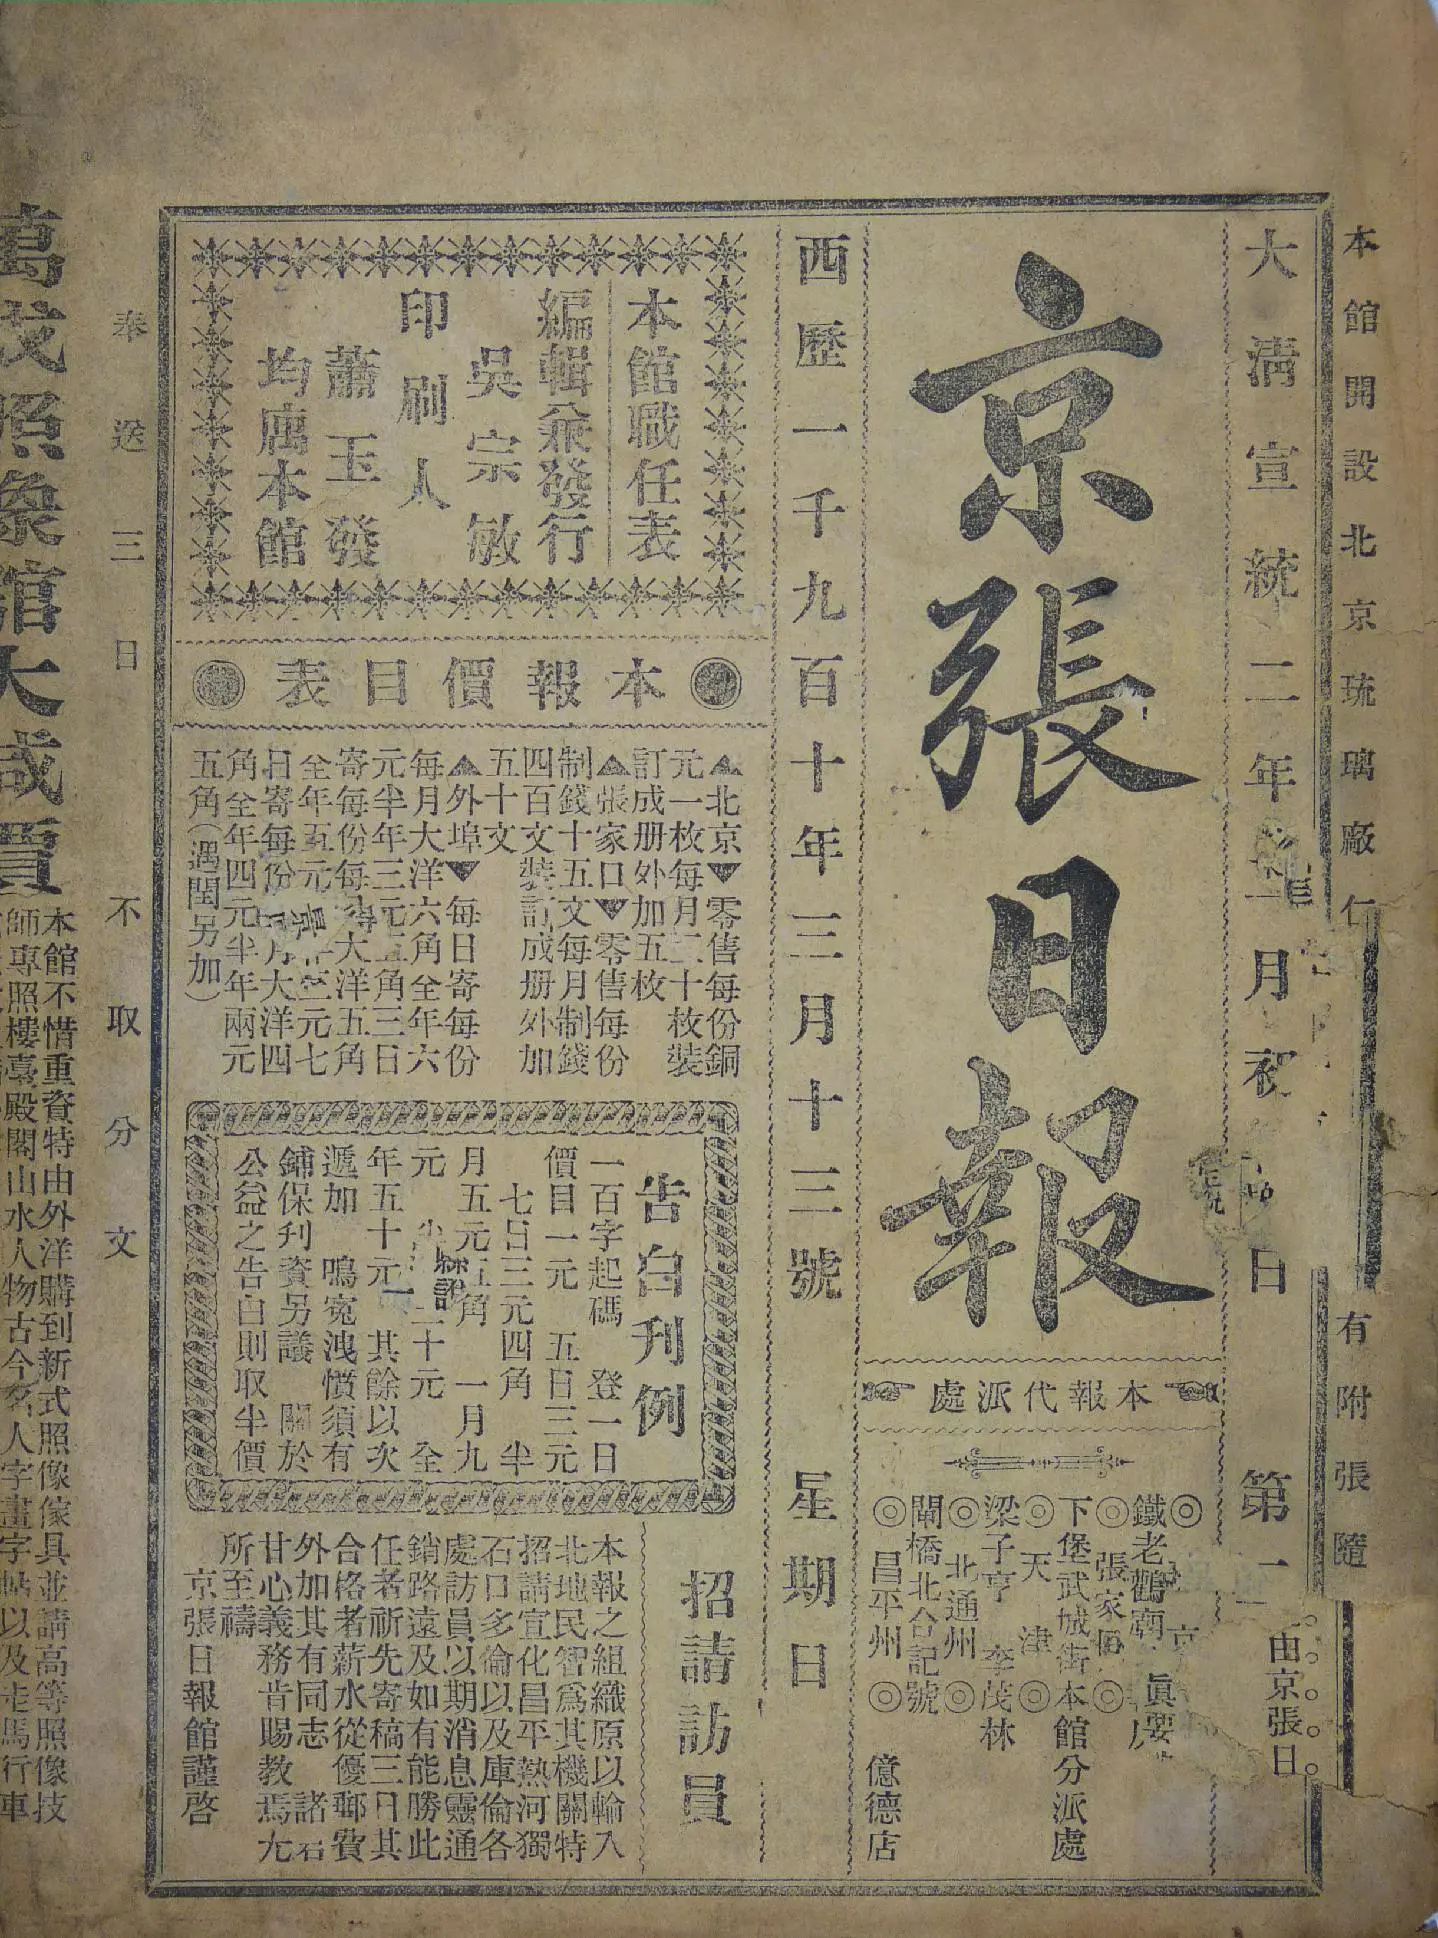 本館開設北京琉璃廠
有附張隨
大淸宣統二年
月初
日
第一
由京張日
京張日報
本報代派處
◎
鐵老鸛廟
◎張家口◎
下堡武城街本館分派處
◎天津◎
梁子亨 李茂林
◎北通州◎
閘橋北合記號
◎昌平州◎ 億德店
西歷一千九百十年三月十三號 星期日
本館職任表
編輯兼發行
吳宗敏
印刷人
蕭玉發
均寓本館
本報價目表
▲北京▼零售每份銅
元一枚每月二十枚裝
訂成册外加五枚
▲張家口▼零售每份
制錢十五文每月制錢
四百文裝訂成册外加
五十文
▲外埠▼每日寄每份
每月大洋六角全年六
元半年三元五角三日
寄每份每月大洋五角
全年五元半年二元七
日寄每份每月大洋四
角全年四元半年兩元
五角(遇閏另加)
告白刊例
一百字起碼 登一日
價目一元 五日三元
七日三元四角 半
月五元五角 一月九
元 二十元 全
年五十元 其餘以次
遞加 鳴寃洩憤須有
鋪保刋資另議 關於
公益之告白則取半價
招請訪員
本報之組織原以輸入
北地民智爲其機關特
招請宣化昌平熱河獨
石口多倫以及庫倫各
處訪員以期消息靈通
銷路遠及如有能勝此
任者祈先寄稿三日其
合格者薪水從優郵費
外加其有同志 諸君
甘心義務肯賜教焉尤
所至禱
京張日報館謹啓
奉送三日不取分文
萬成照象館大減價
本館不惜重資特由外洋購到新式照像傢具並請高等照像技
師專照樓臺殿閣山水人物古今名人字畫字帖以及走馬行車